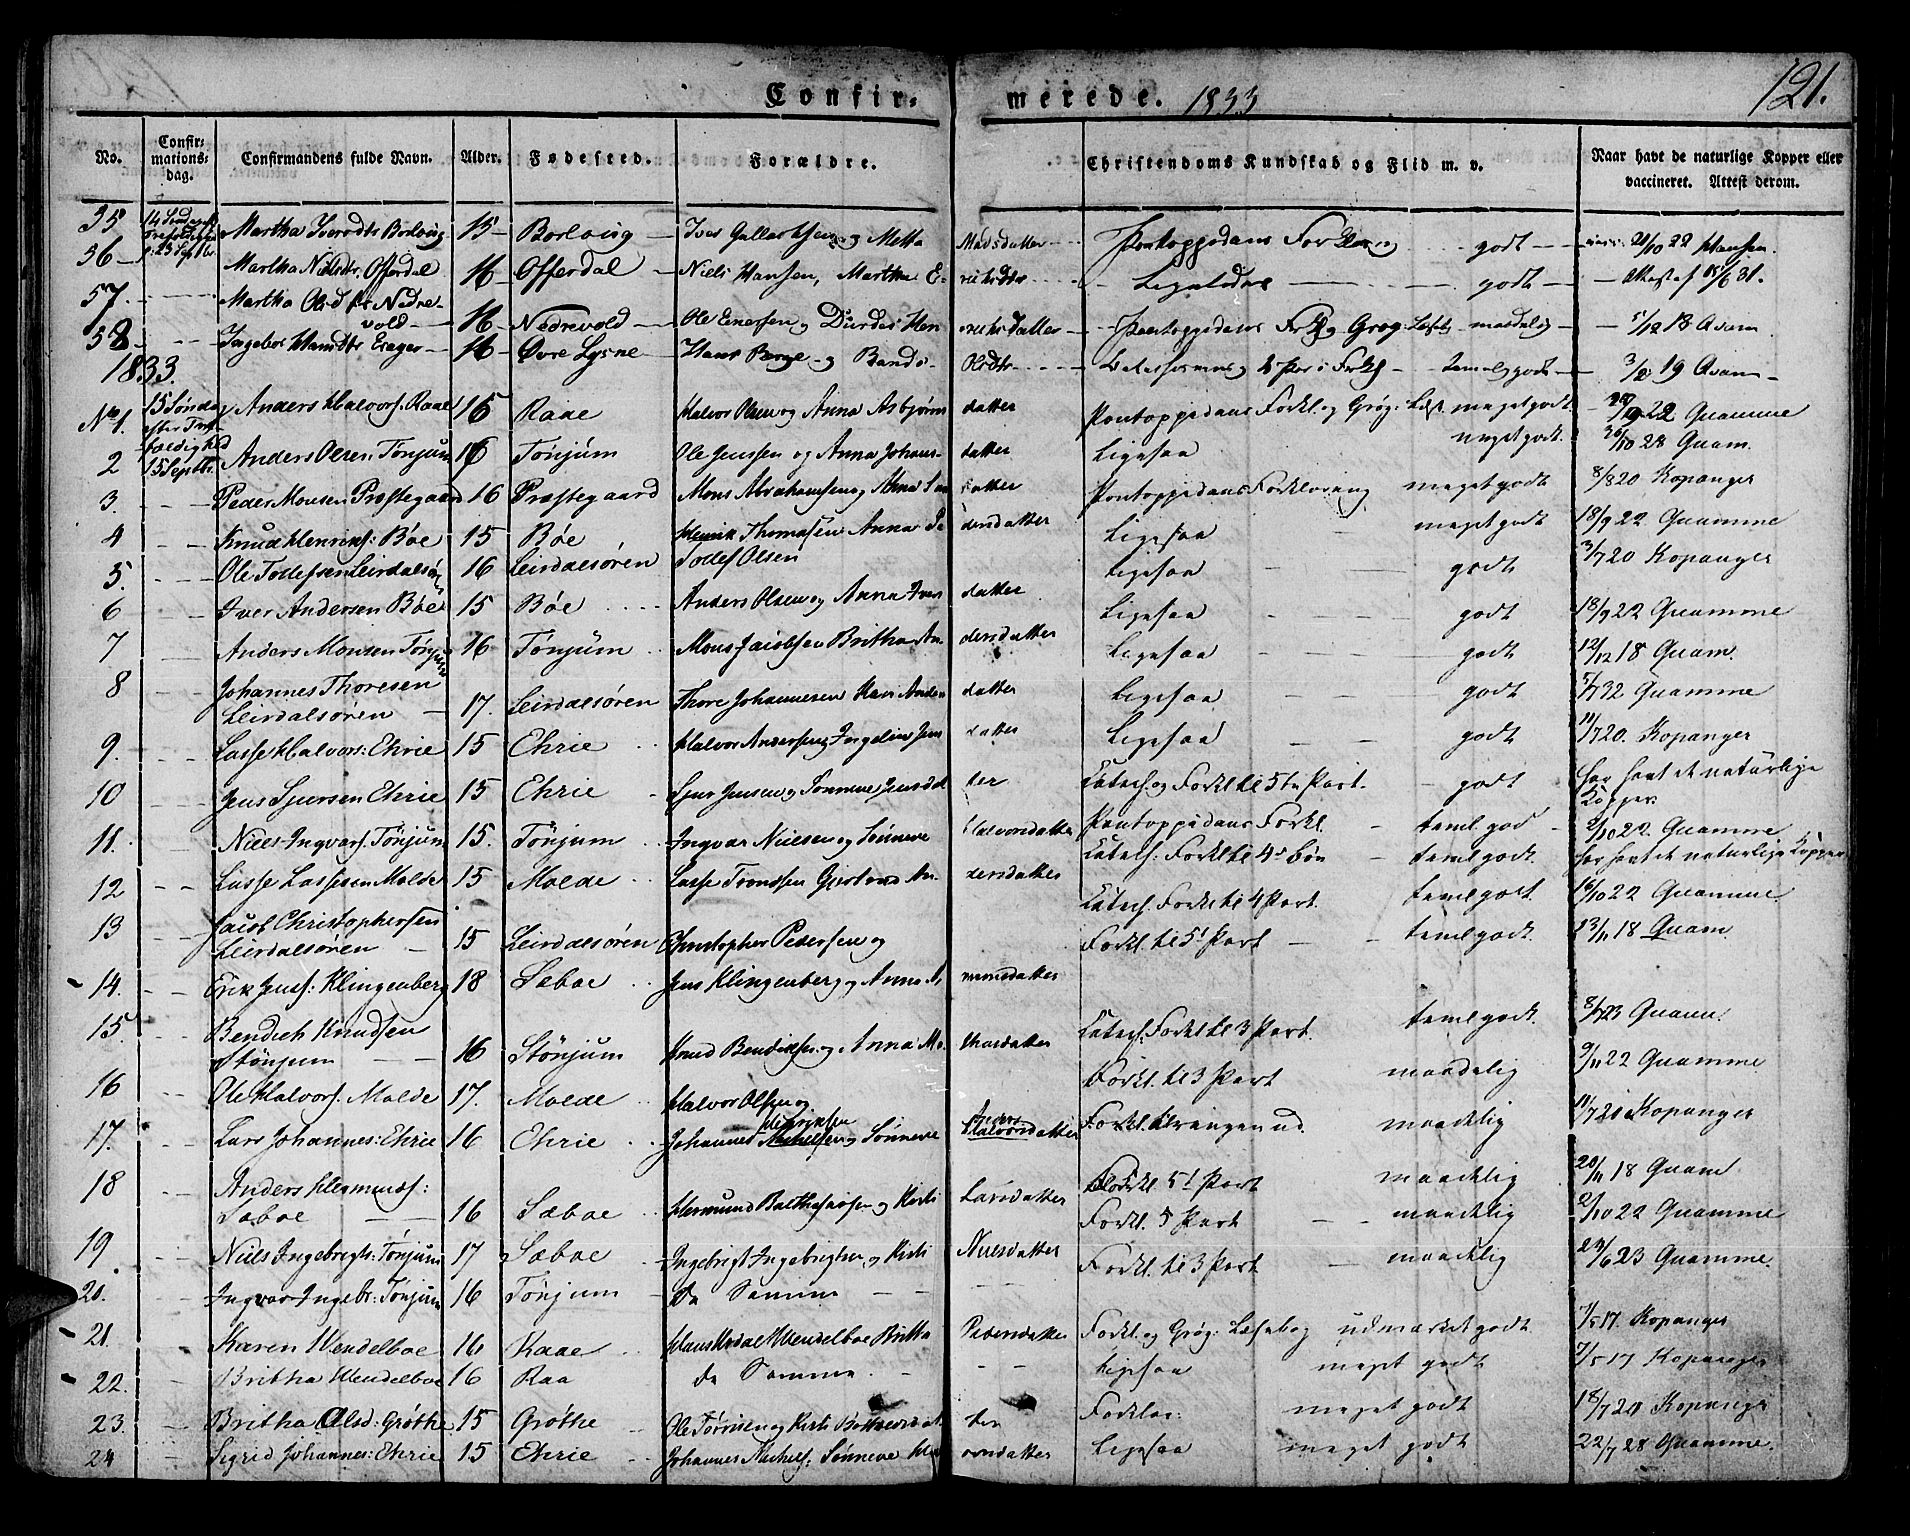 Confir- merede. 1833 121.
No. Confir-mations-dag. Confirmandens fulde Navn. Alder. Fødested. Forældre. Christendoms Kundskab og Flid m. v. Naar havt de naturlige Kopper eller vaccineret. Attest derom.
55 15 Borloug Metta Madsdatter godt 22 Hansen
56 Martha Nielsdtr Offerdal 16 Offerdal Niels Hansen, Martha E- godt Attest af 15/6 31.
57. Martha Nedre-vold 16 Nedrevold Ole Enersen og 5/12 18
58 Ingebor 16 Øvre Lysne Hans Olsdtr 19
1833.
No 1. 15 Søndag efter Tre-foldighed 15 Septbr. Anders Halvors. Raae 16 Raae Halvor Olsen og Anna Asbjørns datter Pontoppidans Forkl. og Grøg: Læst. meget godt 22 Quamme
2 Anders Olsen Tønjum 16 Tønjum Ole Jenssen og Anna Johans- datter Ligesaa meget godt. 28 Quam.
3. Peder Monsen Præstegaard 16 Præstegaard Mons Abrahamsen og Anna datter Pontoppidans Forklaring meget godt 8/8 20 Kopanger
4 Knud Henriks: Bøe 15 Bøe Henrik Thomassen Anna Pe dersdatter Ligesaa meget godt 18/9 22 Quamme
5. Ole Tollefsen Leirdalsøren 16 Leirdalsøren Tollef Olsen Ligesaa godt 3/7 20 Kopanger
6 Iver Andersen Bøe 15 Bøe Anders Olsen og Anna Ivers datter Ligesaa godt 18/9 22 Quamme
7 Anders Monsen Tønjum 16 Tønjum Mons Jacobsen Britha An- dersdatter Ligesaa godt 12/12 18 Quam.
8 Johannes Thoresen Leirdalsøren 17. Leirdalsøren Thore Johannesen Kari Anders datter Ligesaa godt 5/7 32 Quamme
9. Lasse Halvors: Ehrie 15 Ehrie Halvor Andersen Ingelin Jens datter Ligesaa godt 11/7 20. Kopanger
10 Jens Sjursen Ehrie 15 Ehrie Sjur Jensen og Sønneve Jensdat ter Catech. og Forkl til 5te Part. godt har havt de naturlige Kopper
11. Niels Ingvars. Tønjum 15. Tønjum Ingvar Nielsen og Sønneve Halvorsdatter Pontoppidans Forkl. teml god 2/10 22 Quamme
12 Lasse Lassesen Molde 15 Molde Lasse Trondsen Gjertrud An- dersdatter Catech: Forkl til 4de Bøn teml godt. har havt de naturlige Kopper
13 Jacob Christophersen Leirdalsøren 15 Leirdalsøren Christopher Pedersen og Catech. Forkl til 4 Part. teml godt. 16/10 22 Quamme
14. Erik Jens: Klingenberg 18 Sæboe Jens Klingenberg og Anna A, mundsdatter Forkl. til 5t Part teml godt. 23/11 18 Quam
15. Bendict Knudsen Stønjum 16 Stønjum Knud Bendictsen og Anna Mo- Catech. Forkl til 3 Part. teml godt. 23 Quam.
16 Ole Halvors. Molde 17. Molde Halvor Olsen og Forkl. til 3 Part maadelig 9/11 22 Quamme
17. Lars Johannes: Ehrie 16 Ehrie Johannes Michelsen Henriksen og Sønneve Halvorsdatter Anders maadelig 11/7 20 Kopanger
18 Anders Hermunds: Sæboe 16 Sæboe Hermund Balthasarsen og Kirsti Larsdatter Forkl 5t Part maadelig 20/11 18 Quam
19. Niels Ingebrigts: Tønjum 17 Sæboe Ingebrigt Ingebrigtsen og Kirsti Nielsdatter Forkl. 5 Part maadelig 2/10 22 Quamme
20. Ingvar Ingebr: Tønjum 16 Tønjum De Samme Forkl. til 3 Part maadelig 23/6 23 Quamme.
21. Karen Wendelboe 16 Raae Wendelboe Britha Pedersdatter Forkl. og Grøg: Læsebog udmærket godt 7/5 17. Kopanger
22. Britha Wendelboe 16 Raa De Samme Ligesaa meget godt 7/5 17 Kopanger
23. Britha Olsd: Grøthe 15 Grøthe Ole og Kirsti ter Forklar: meget godt 18/7 20 Kopanger
24 Sigrid Johannes: Ehrie 15 Ehrie Johannes Michels. Sønneve Hal vorsdatter Ligesaa meget godt 22/7 28 Quamme.